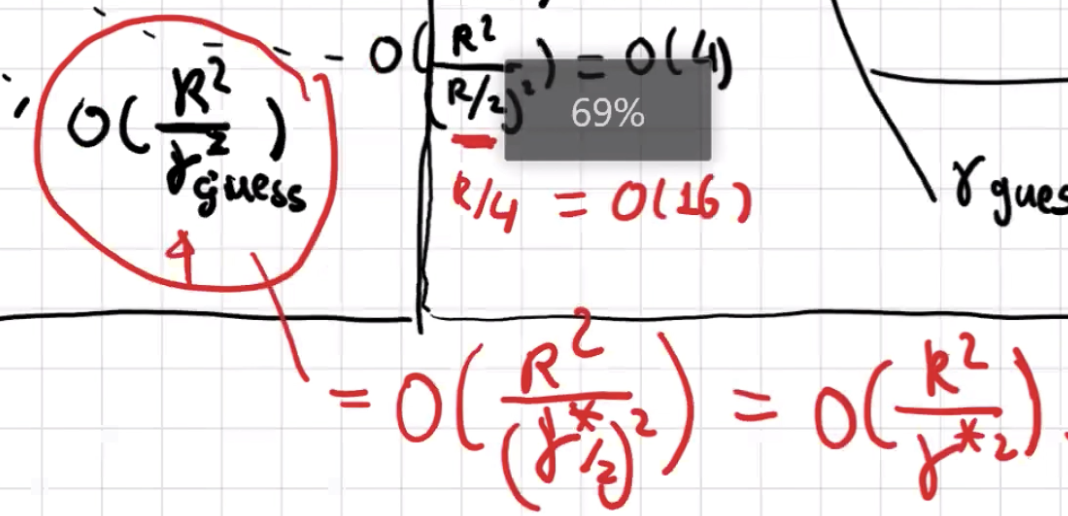 O(R²/γ²guess) O(R²/(R/2)²) = O(4)
69%
R/4 = O(16)
γgues
= O(R²/(γ*/2)²) = O(R²/γ*²)